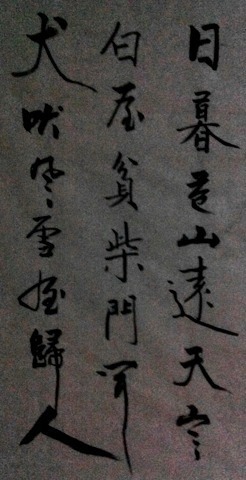 日暮蒼山遠天寒
白屋貧柴門聞
犬吠風雪夜歸人